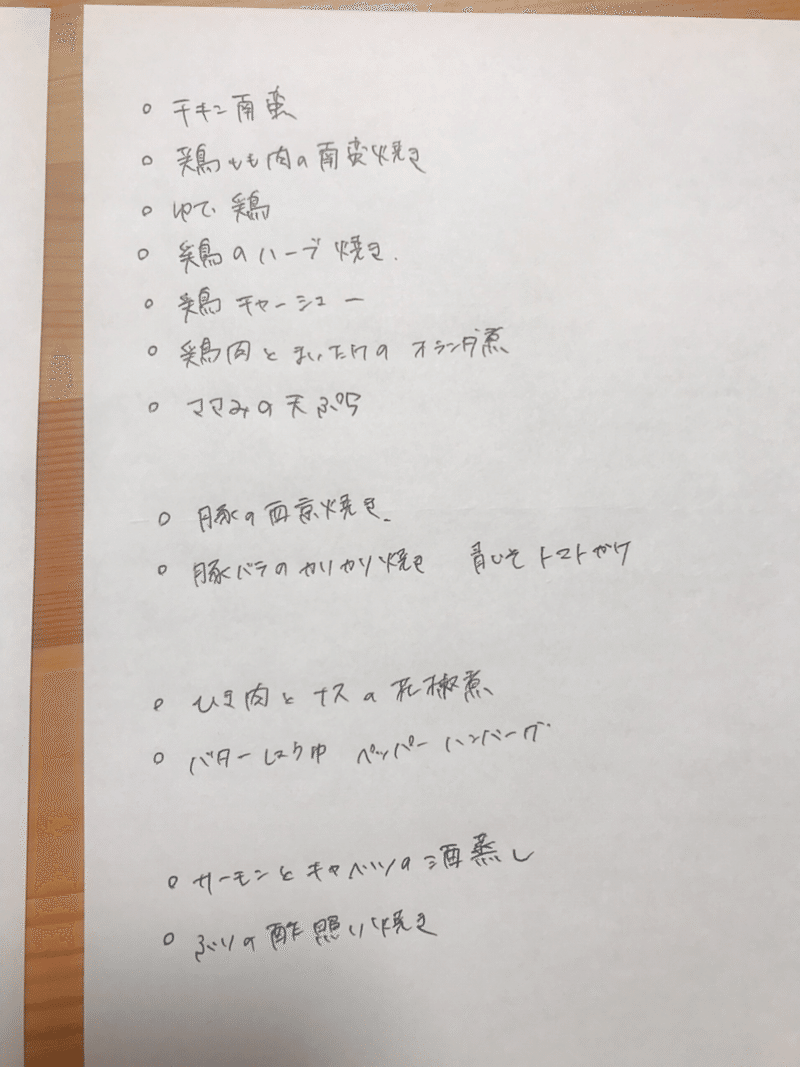 ○ チキン南蛮
○ 鶏もも肉の南蛮焼き
○ ゆで鶏
○ 鶏のハーブ焼き.
○ 鶏チャーシュー
○ 鶏肉とまいたけのオランダ煮
○ ママみの天ぷら
○ 豚の西京焼き.
○ 豚バラのカリカリ焼き 青じそトマトがけ
○ ひき肉とナスの花椒煮
○ バターしょうゆ ペッパーハンバーグ
○ サーモンとキャベツの酒蒸し
○ ぶりの酢照り焼き